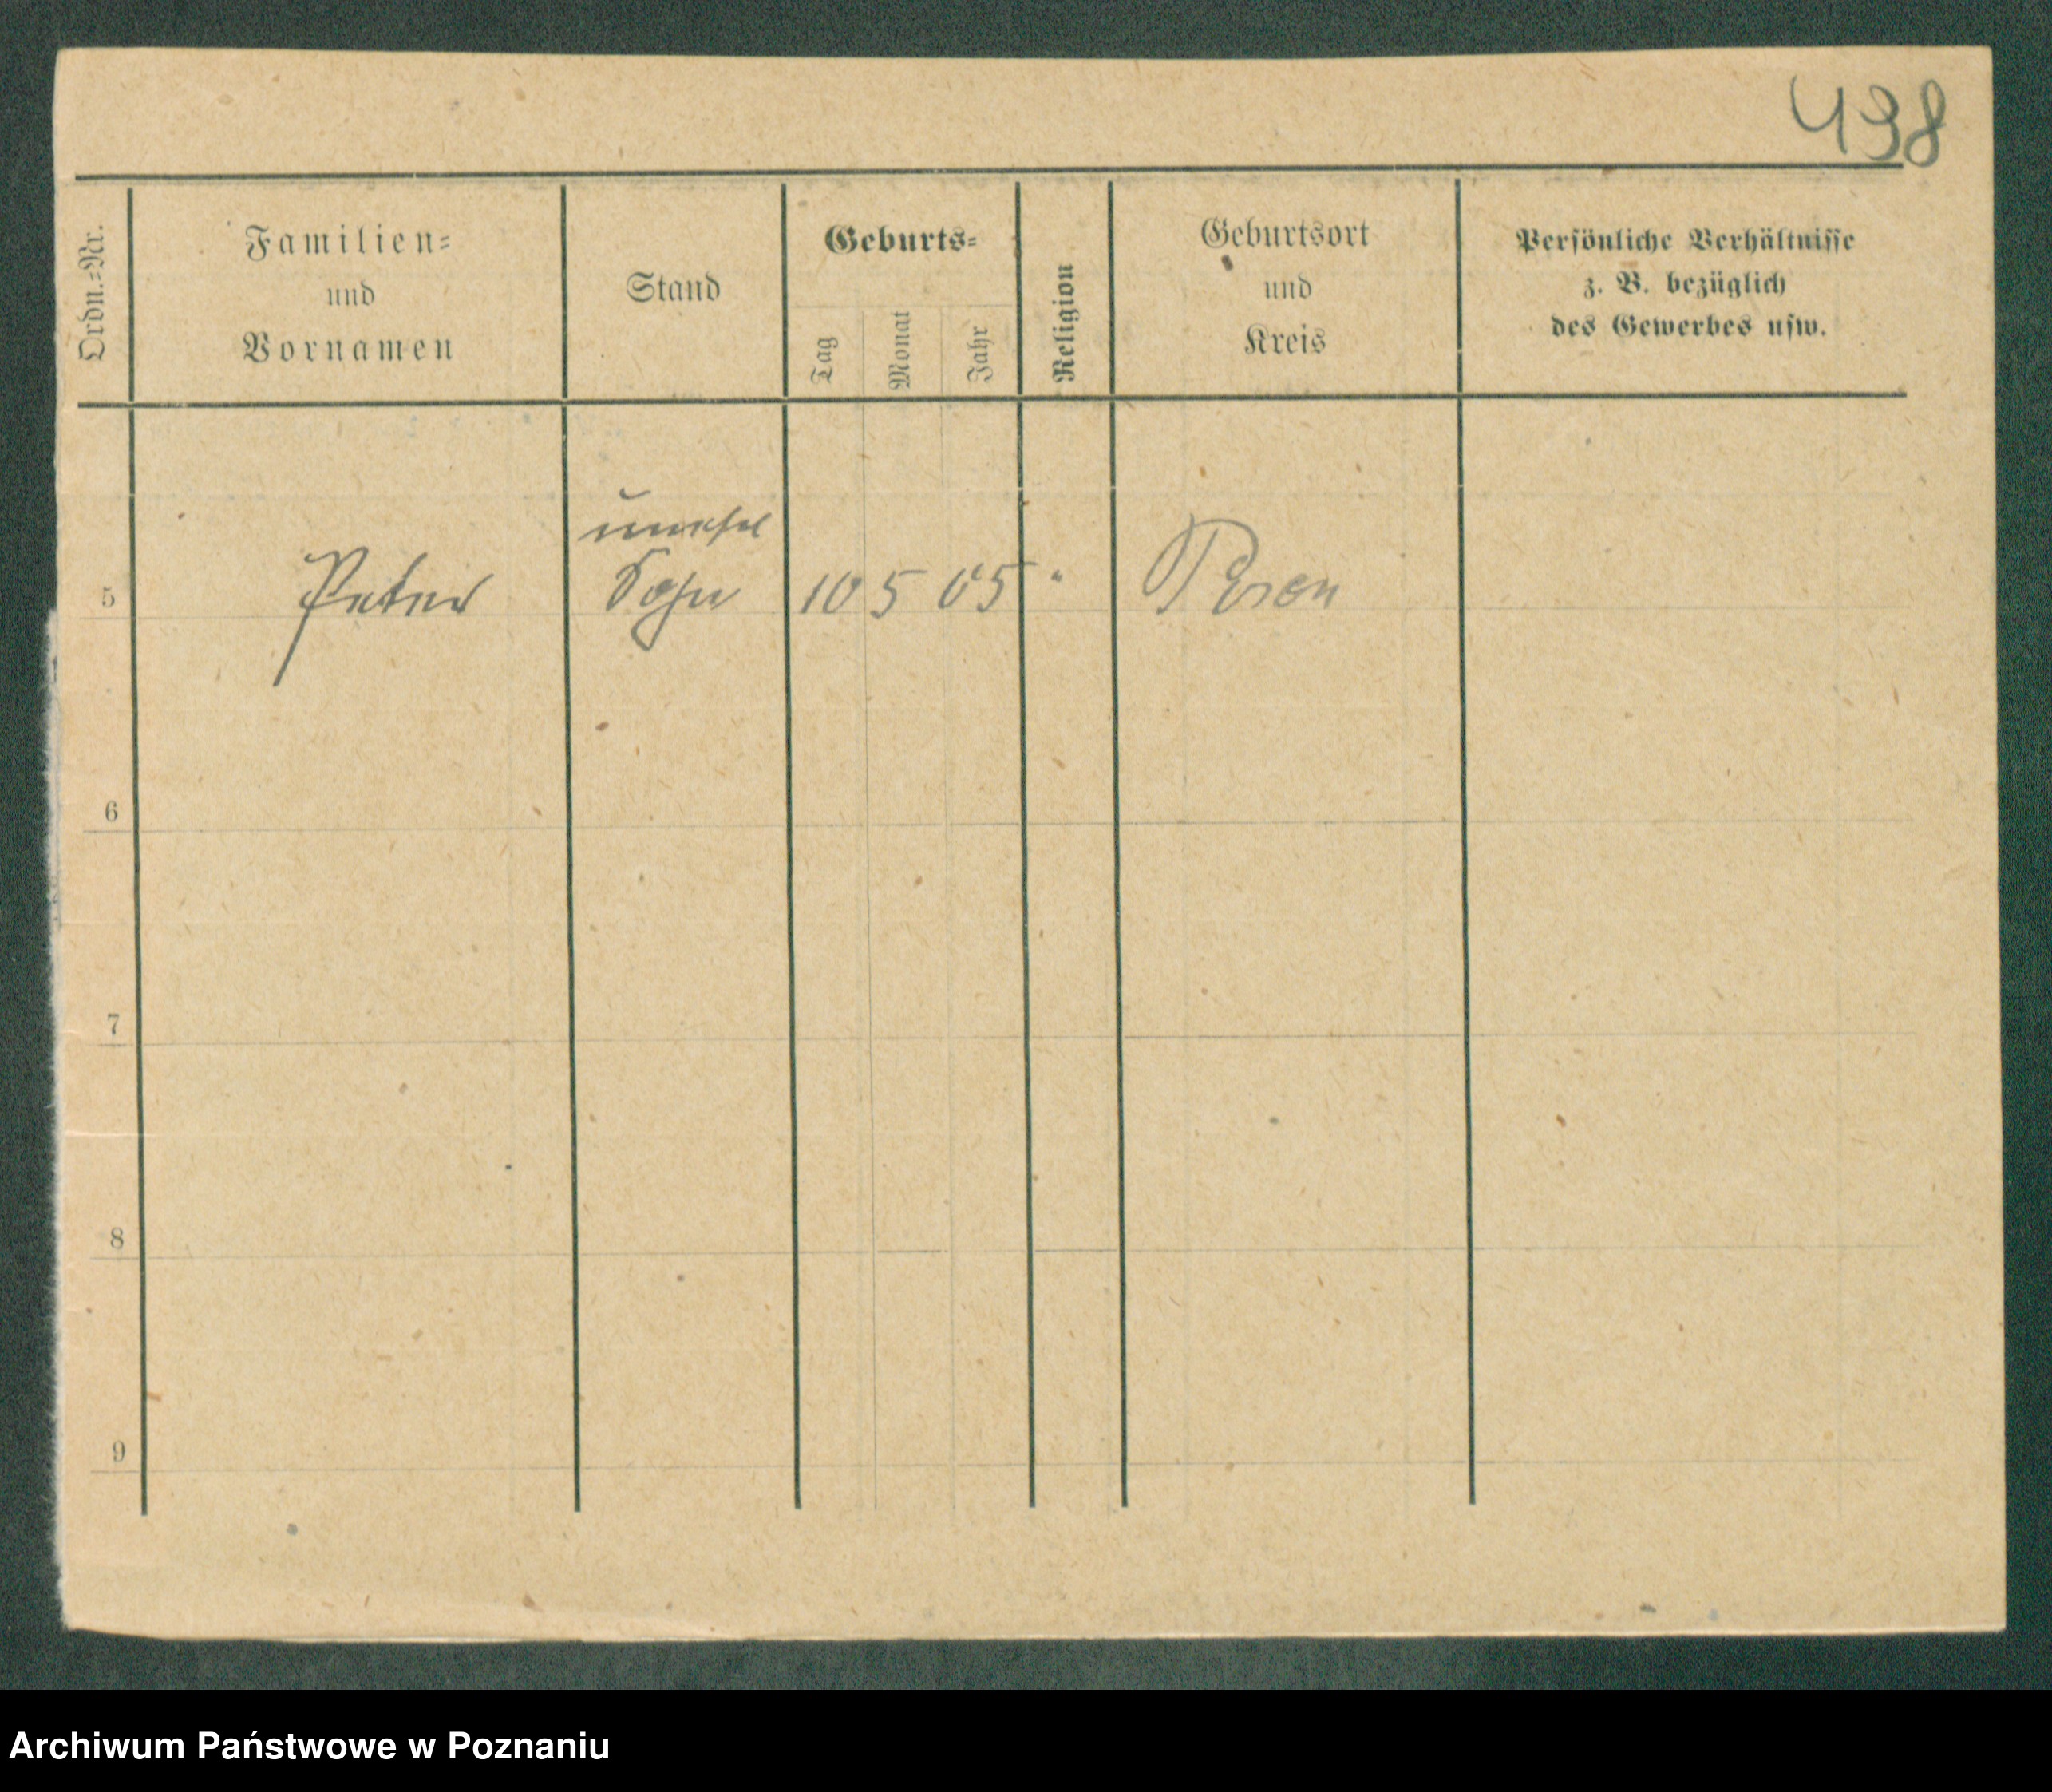 438
Ordn.-Nr.
Familien-
und
Vornamen
Stand
Geburts-
Tag
Monat
Jahr
Religion
Geburtsort
und
Kreis
Persönliche Verhältnisse
z. B. bezüglich
des Gewerbes usw.
unehel
5 Peter Sohn 10 5 05 " Posen
6
7
8
9
Archiwum Państwowe w Poznaniu